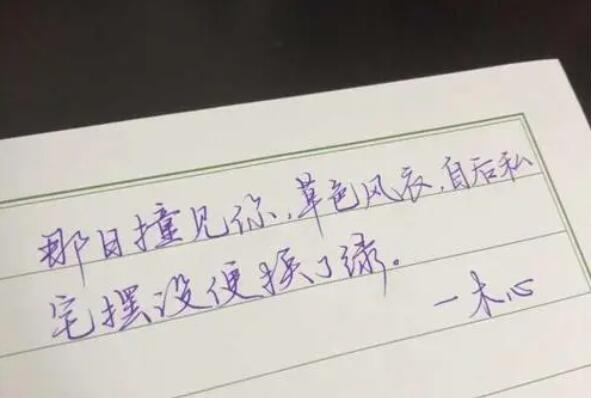 那日撞见你，草色风衣，自后私
宅摆没便换了绿。
—木心